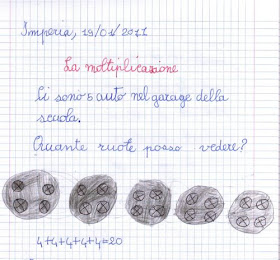 Imperia, 19/01/2011
La moltiplicazione
Ci sono 5 auto nel garage della
scuola.
Quante ruote posso vedere?
4+4+4+4+4=20